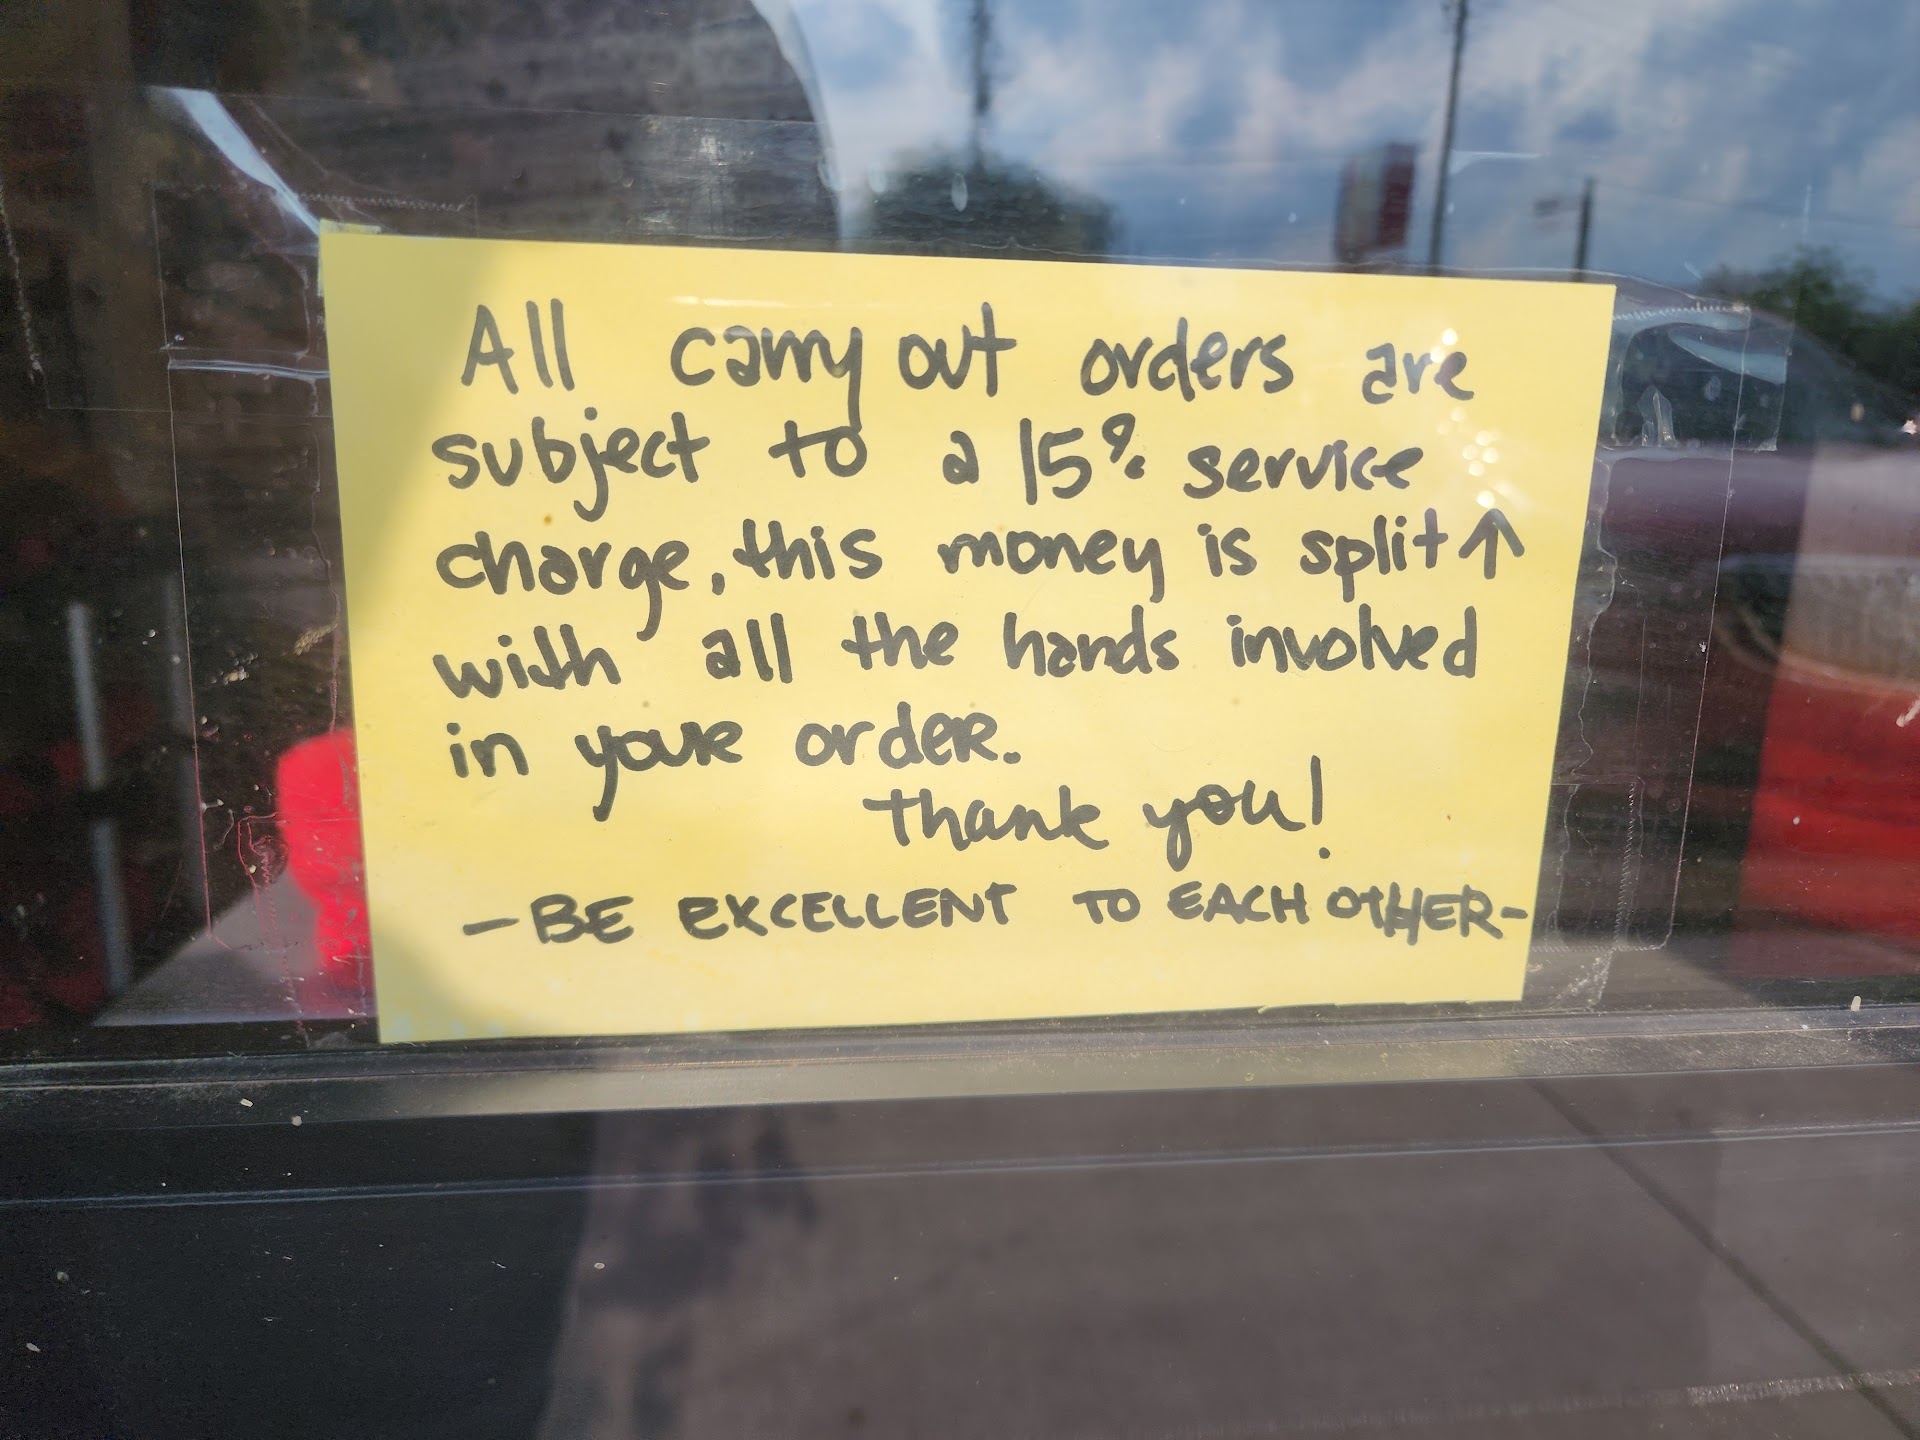 All carry out orders are
subject to a 15% service
charge, this money is split ↑
with all the hands involved
in your order.
Thank you!
- BE EXCELLENT TO EACH OTHER -